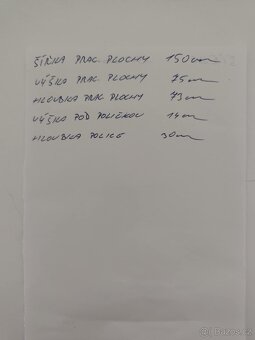 ŠÍŘKA PRAC. PLOCHY 150cm
VÝŠKA PRAC. PLOCHY 75cm
HLOUBKA PRAC PLOCHY 73cm
VÝŠKA POD POLIČKOU 14cm
HLOUBKA POLICE 30cm
© Bazos.cz